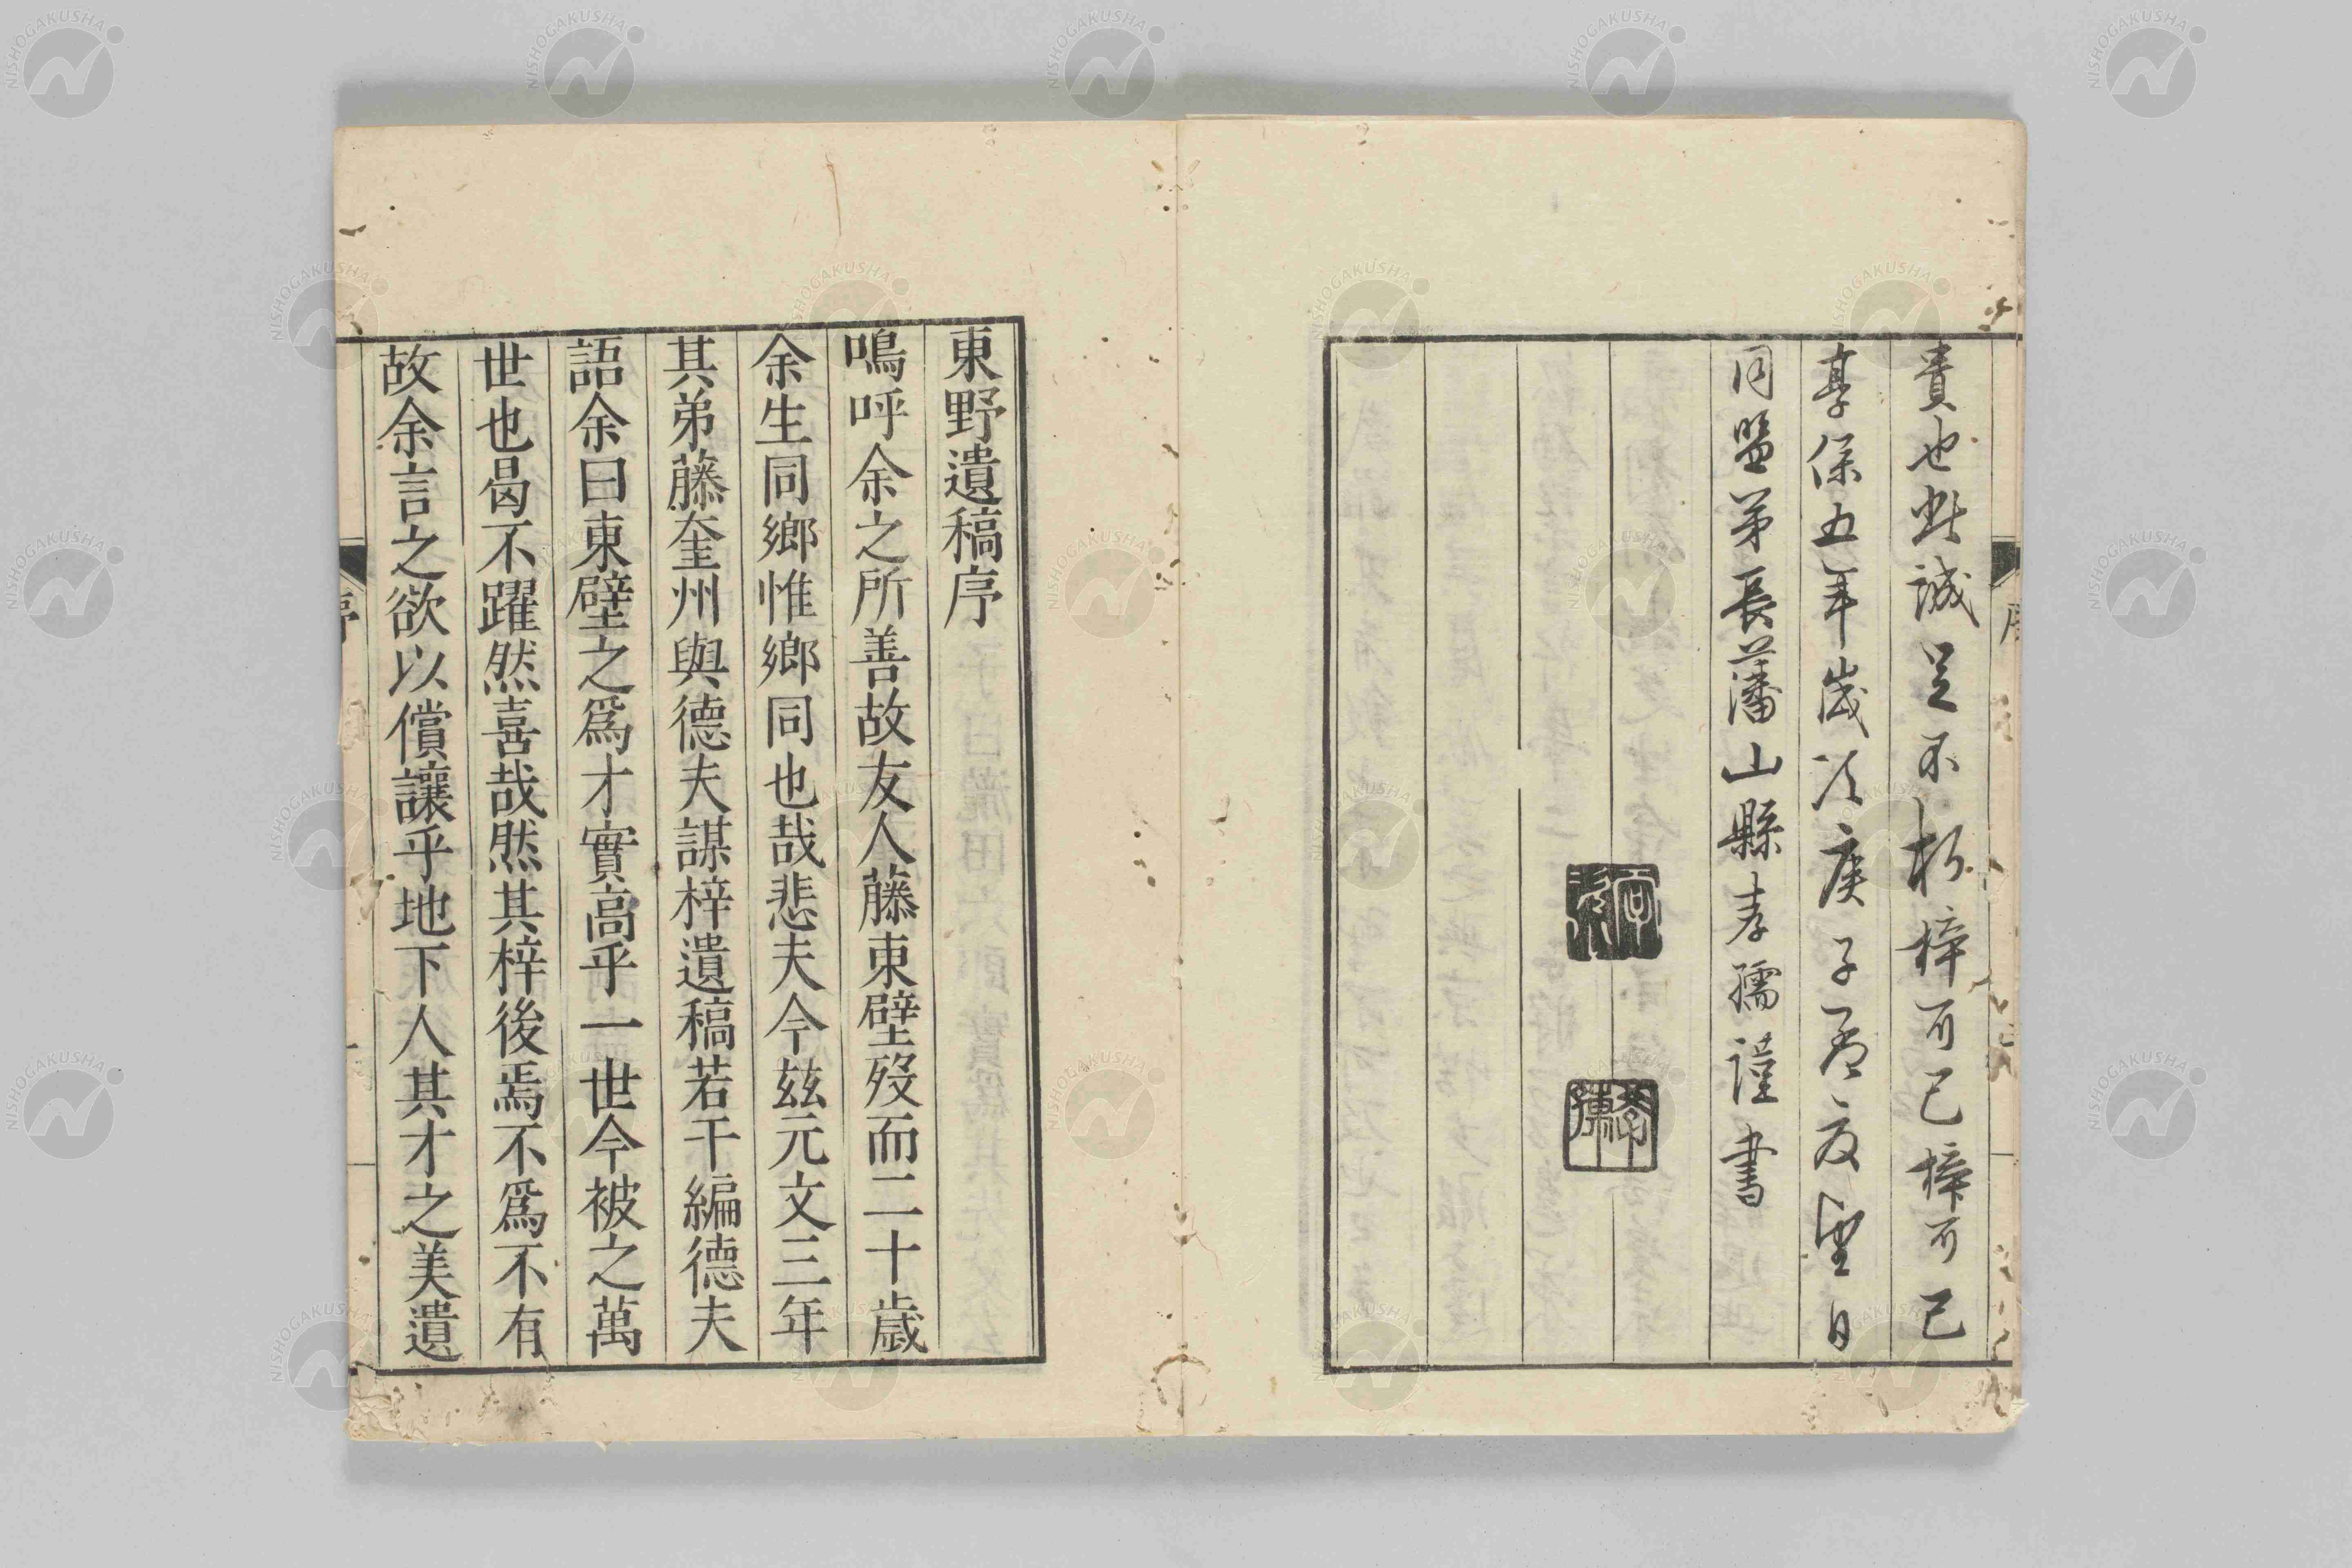 貴也哉誠足不朽梓可已梓可已
享保五年歳次庚子孟夏望日
同盟弟長藩山縣孝孺謹書
孝孺
序
東野遺稿序
鳴呼余之所善故友人藤東壁歿而二十歳
余生同鄉惟鄉同也哉悲夫今茲元文三年
其弟藤奎州與德夫謀梓遺稿若干編德夫
語余曰東壁之爲才實高乎一世今被之萬
世也曷不躍然喜哉然其梓後焉不爲不有
故余言之欲以償讓乎地下人其才之美遺
序
NISHOGAKUSHA